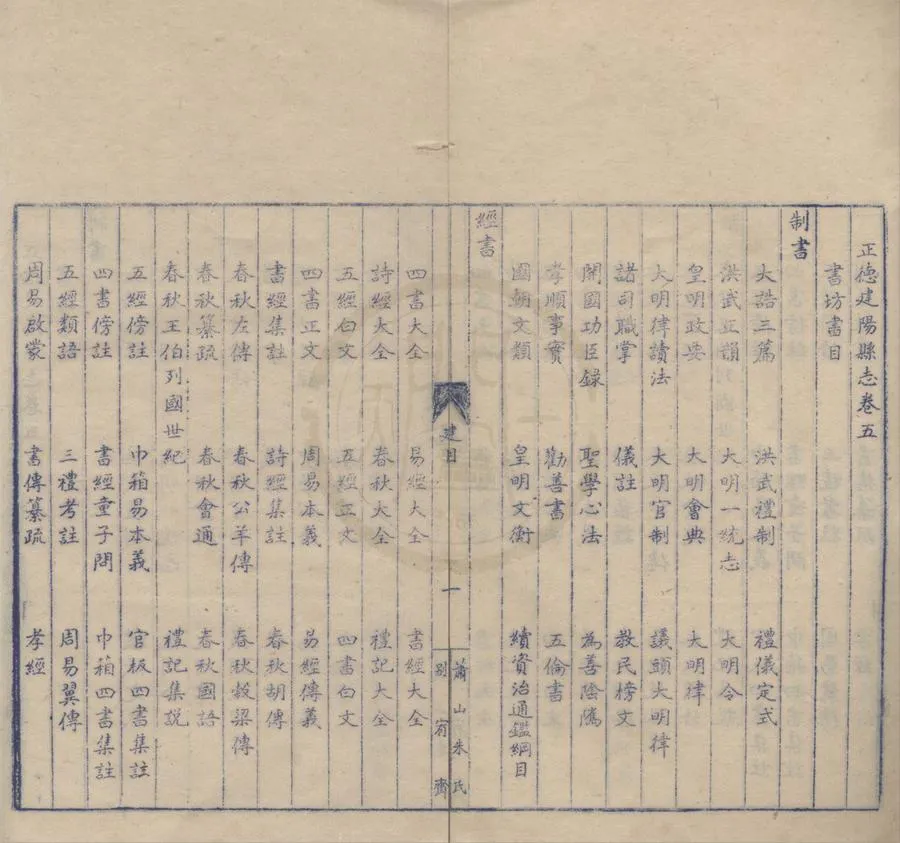 正德建陽縣志卷五
書坊書目
制書
大誥三篇 洪武禮制 禮儀定式
洪武正韻 大明一統志 大明令
皇明政要 大明會典 大明律
大明律讀法 大明官制 議頭大明律
諸司職掌 儀註 教民榜文
開國功臣錄 聖學心法 為善陰隲
孝順事實 勸善書 五倫書
國朝文類 皇明文衡 續資治通鑑綱目
經書
四書大全 易經大全 書經大全
建目
一
蕭山朱氏
別宥齋
詩經大全 春秋大全 禮記大全
五經白文 五經正文 四書白文
四書正文 周易本義 易經傳義
書經集註 詩經集註 春秋胡傳
春秋左傳 春秋公羊傳 春秋穀梁傳
春秋纂疏 春秋會通 春秋國語
春秋王伯列國世紀 禮記集説
五經傍註 巾箱易本義 官板四書集註
四書傍註 書經童子問 巾箱四書集註
五經類語 三禮考註 周易翼傳
周易啟蒙 書傳纂疏 孝經